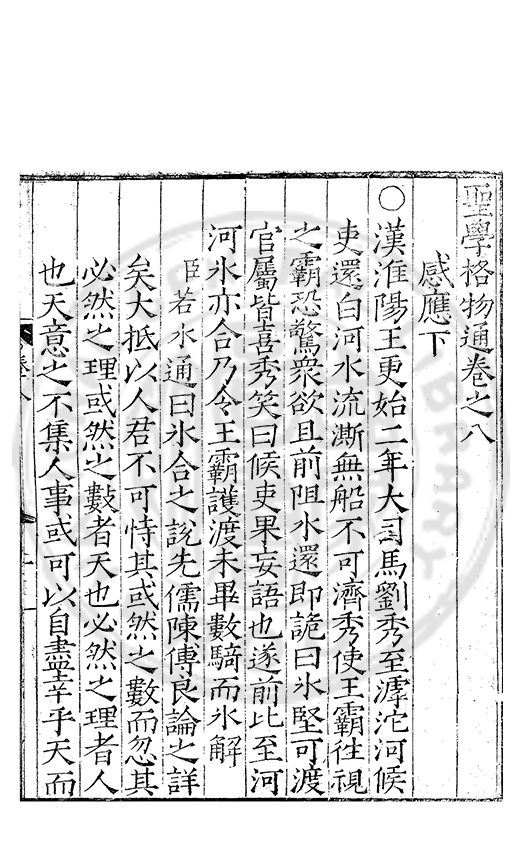 聖學格物通卷之八
感應下
○漢淮陽王更始二年大司馬劉秀至滹沱河候
吏還白河水流澌無船不可濟秀使王霸徃視
之霸恐驚衆欲且前阻水還即詭曰氷堅可渡
官屬皆喜秀笑曰候吏果妄語也遂前比至河
河氷亦合乃令王霸護渡未畢數騎而氷解
臣若水通曰氷合之說先儒陳傅良論之詳
矣大抵以人君不可恃其或然之數而忽其
必然之理或然之數者天也必然之理者人
也天意之不集人事或可以自盡幸乎天而